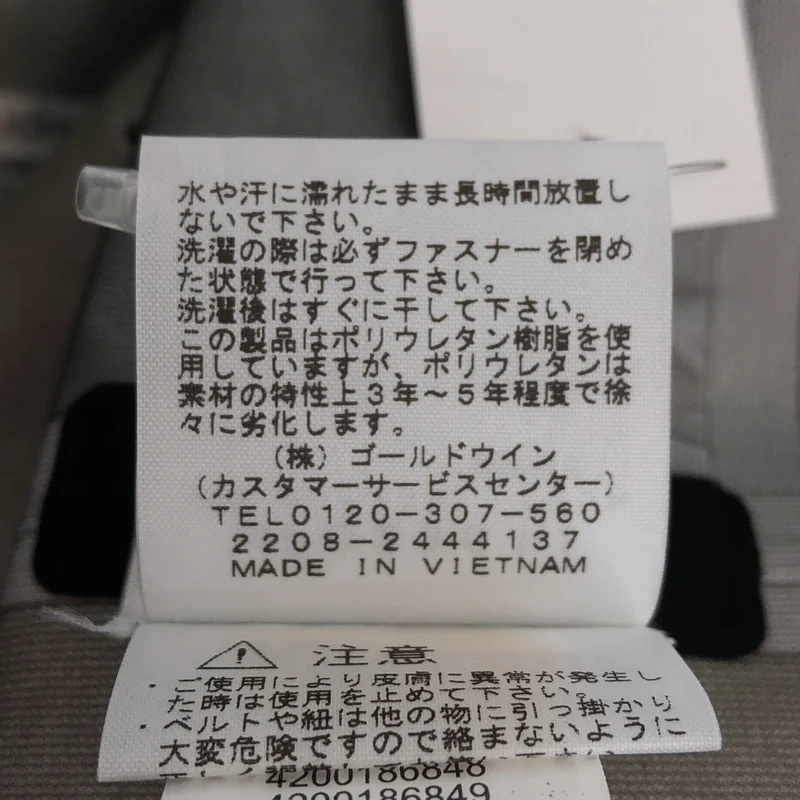 水や汗に濡れたまま長時間放置し
ないで下さい。
洗濯の際は必ずファスナーを閉め
た状態で行って下さい。
洗濯後はすぐに干して下さい。
この製品はポリウレタン樹脂を使
用していますが、ポリウレタンは
素材の特性上3年～5年程度で徐
々に劣化します。
(株)ゴールドウイン
(カスタマーサービスセンター)
TEL0120-307-560
2208-2444137
MADE IN VIETNAM
注意
・ご使用により皮膚に異常が発生し
た時は使用を止めて下さい。
・ベルトや紐は他の物に引っ掛かり
大変危険ですので絡まないように
4200186848
4200186849